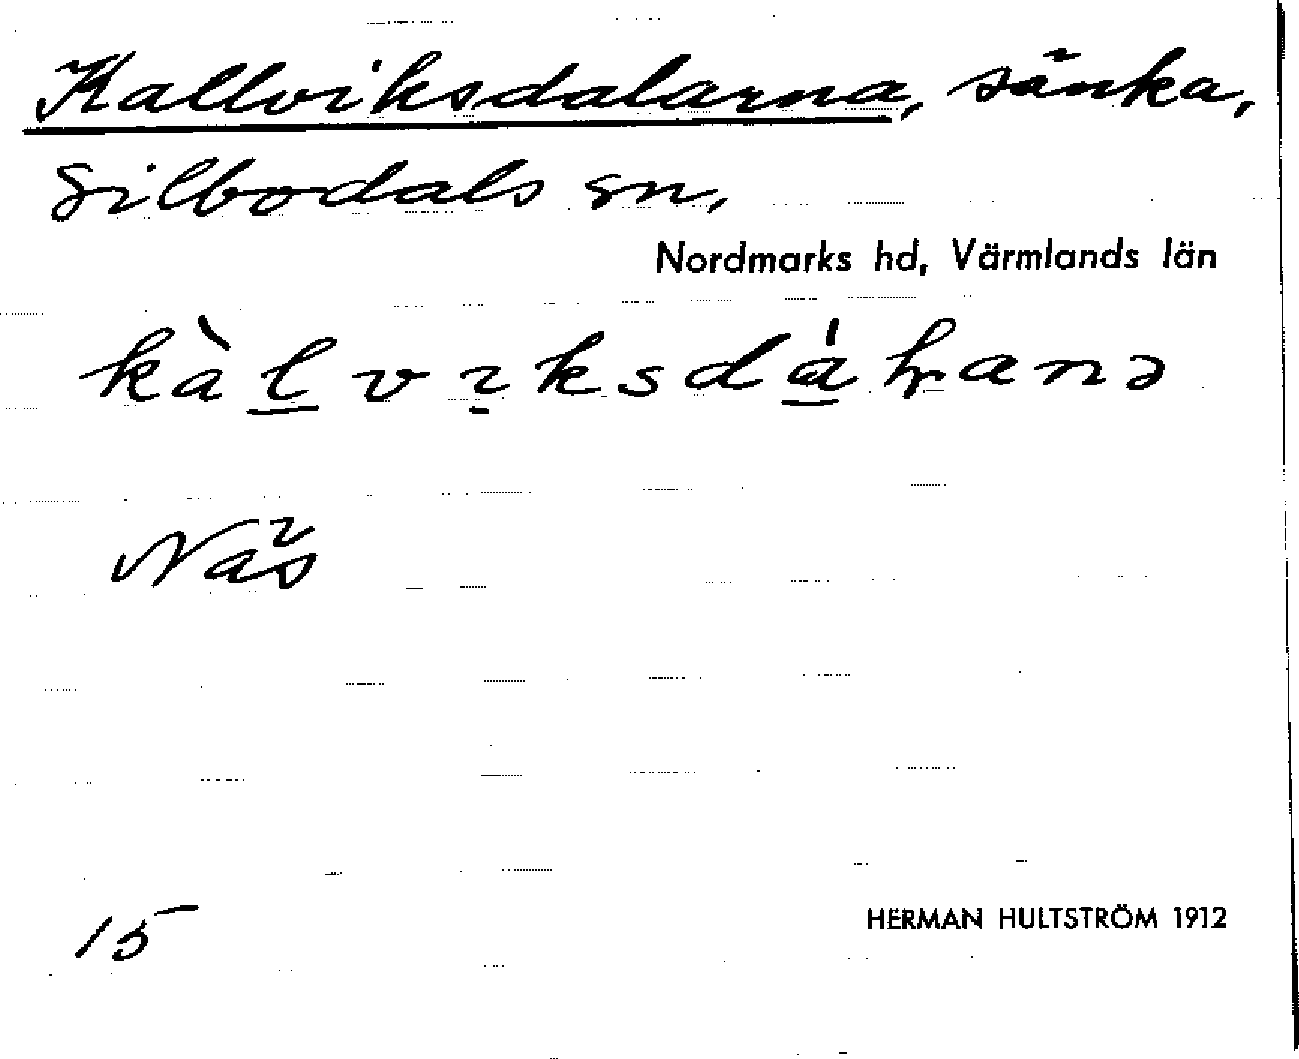 Kallviksdalarna, sänka,
Silbodals sn,
Nordmarks hd, Värmlands län
kàl̲vı̣ksdá̲ɽanə
Näs
15
HERMAN HULTSTRÖM 1912